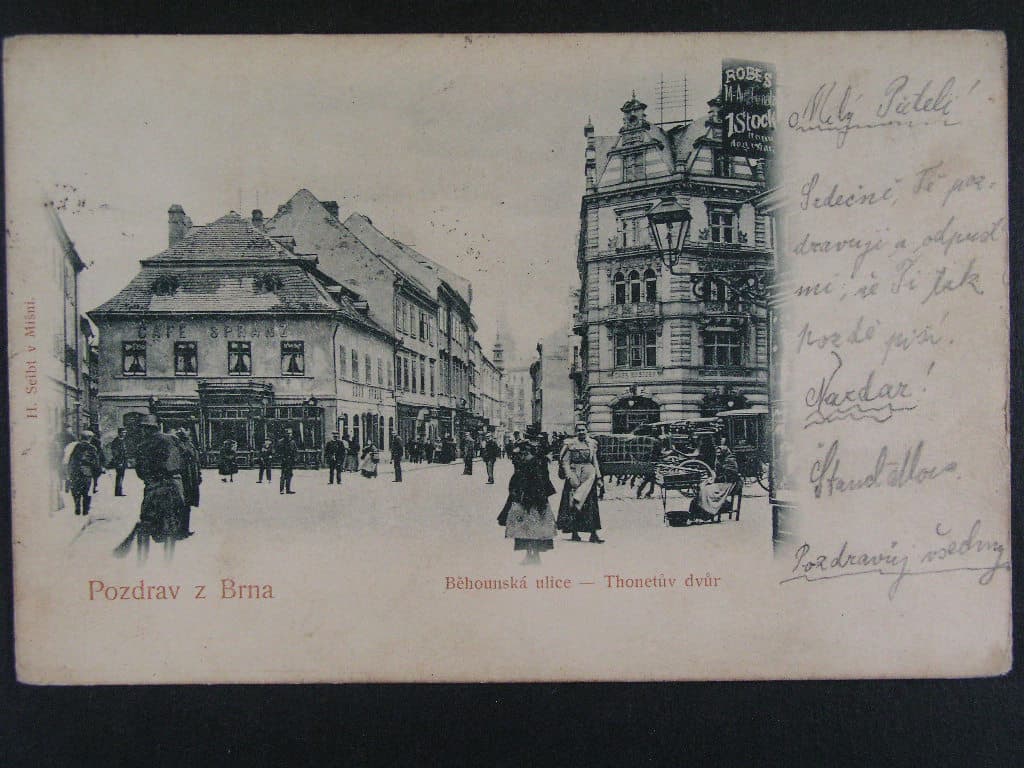 ROBES
1 Stock
CAFÉ SPRANZ
Milý Píteli!
Srdečně Tě poz-
dravuji a odpusť
mi, že Ti tak
pozdě píši.
Nazdar!
Pozdravuj všechny
H. Seibt v Míšni.
Pozdrav z Brna
Běhounská ulice — Thonetův dvůr